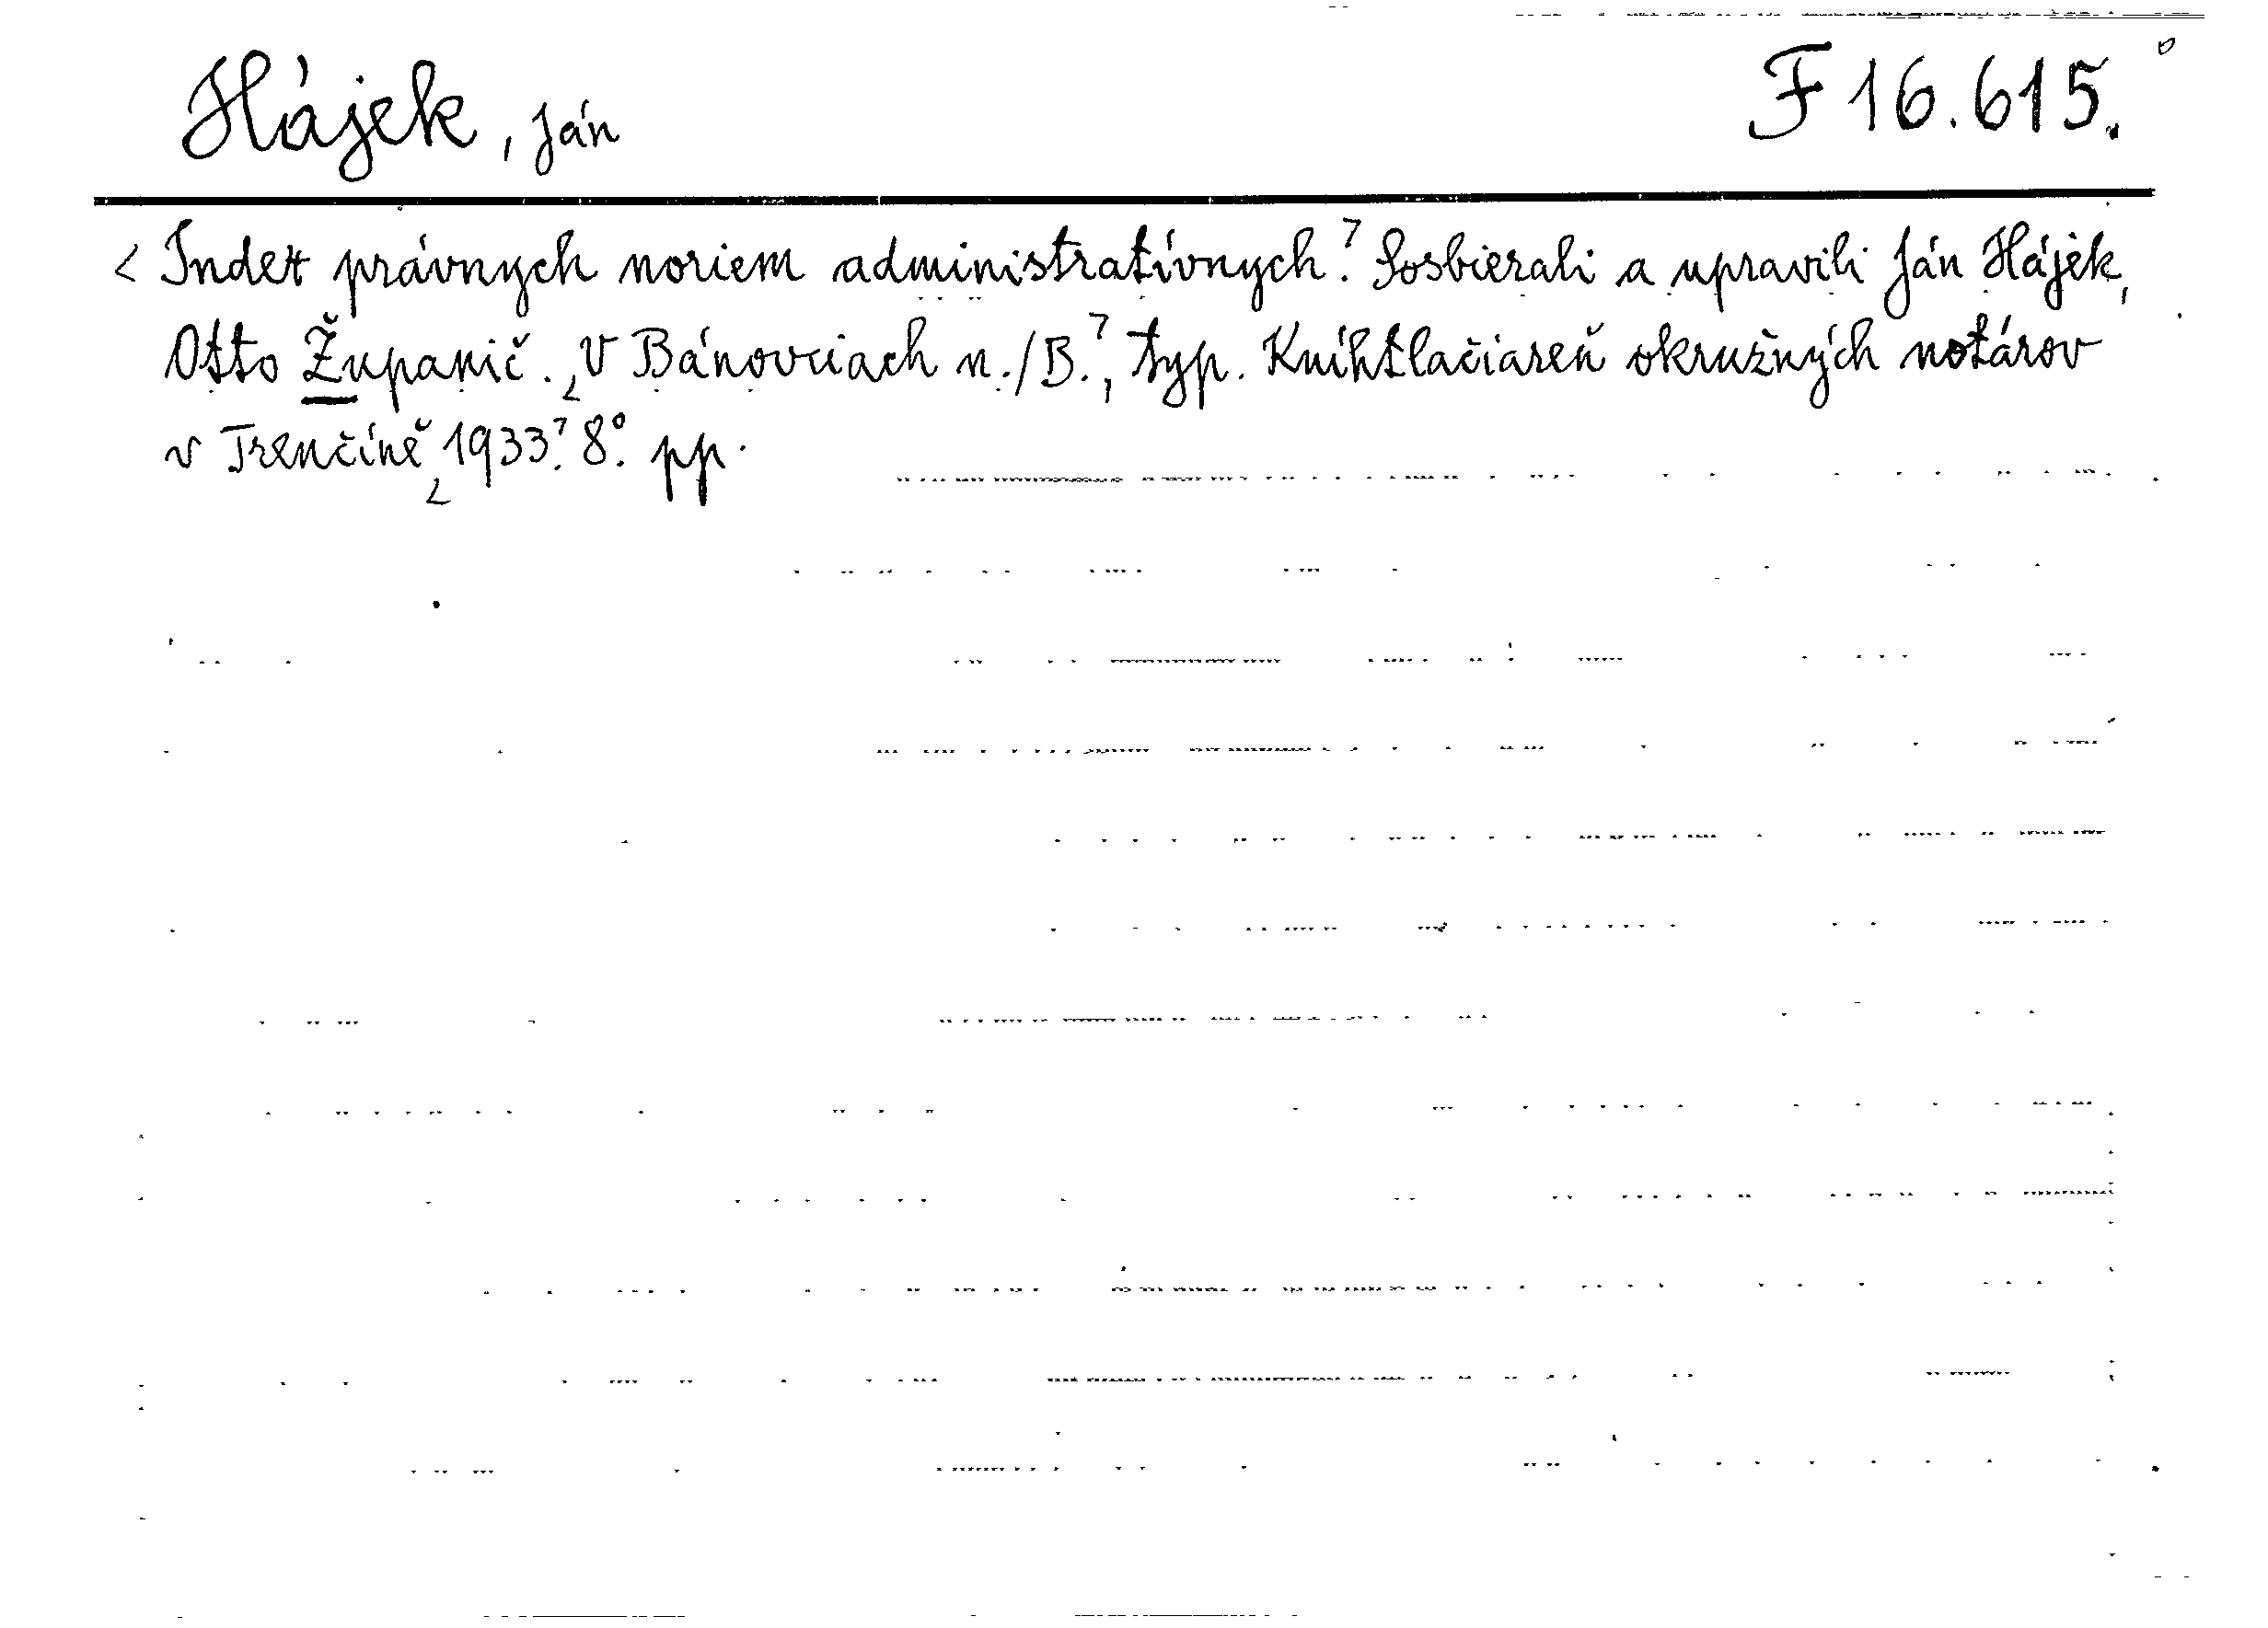 Hájek, Ján
F 16.615.
< Index právnych noriem administratívnych.> Sosbierali a upravili Ján Hájek,
Otto Županič. <V Bánovciach n./B.>, typ. Kníhtlačiareň okružných notárov
v Trenčíně <1933.> 8°. pp.